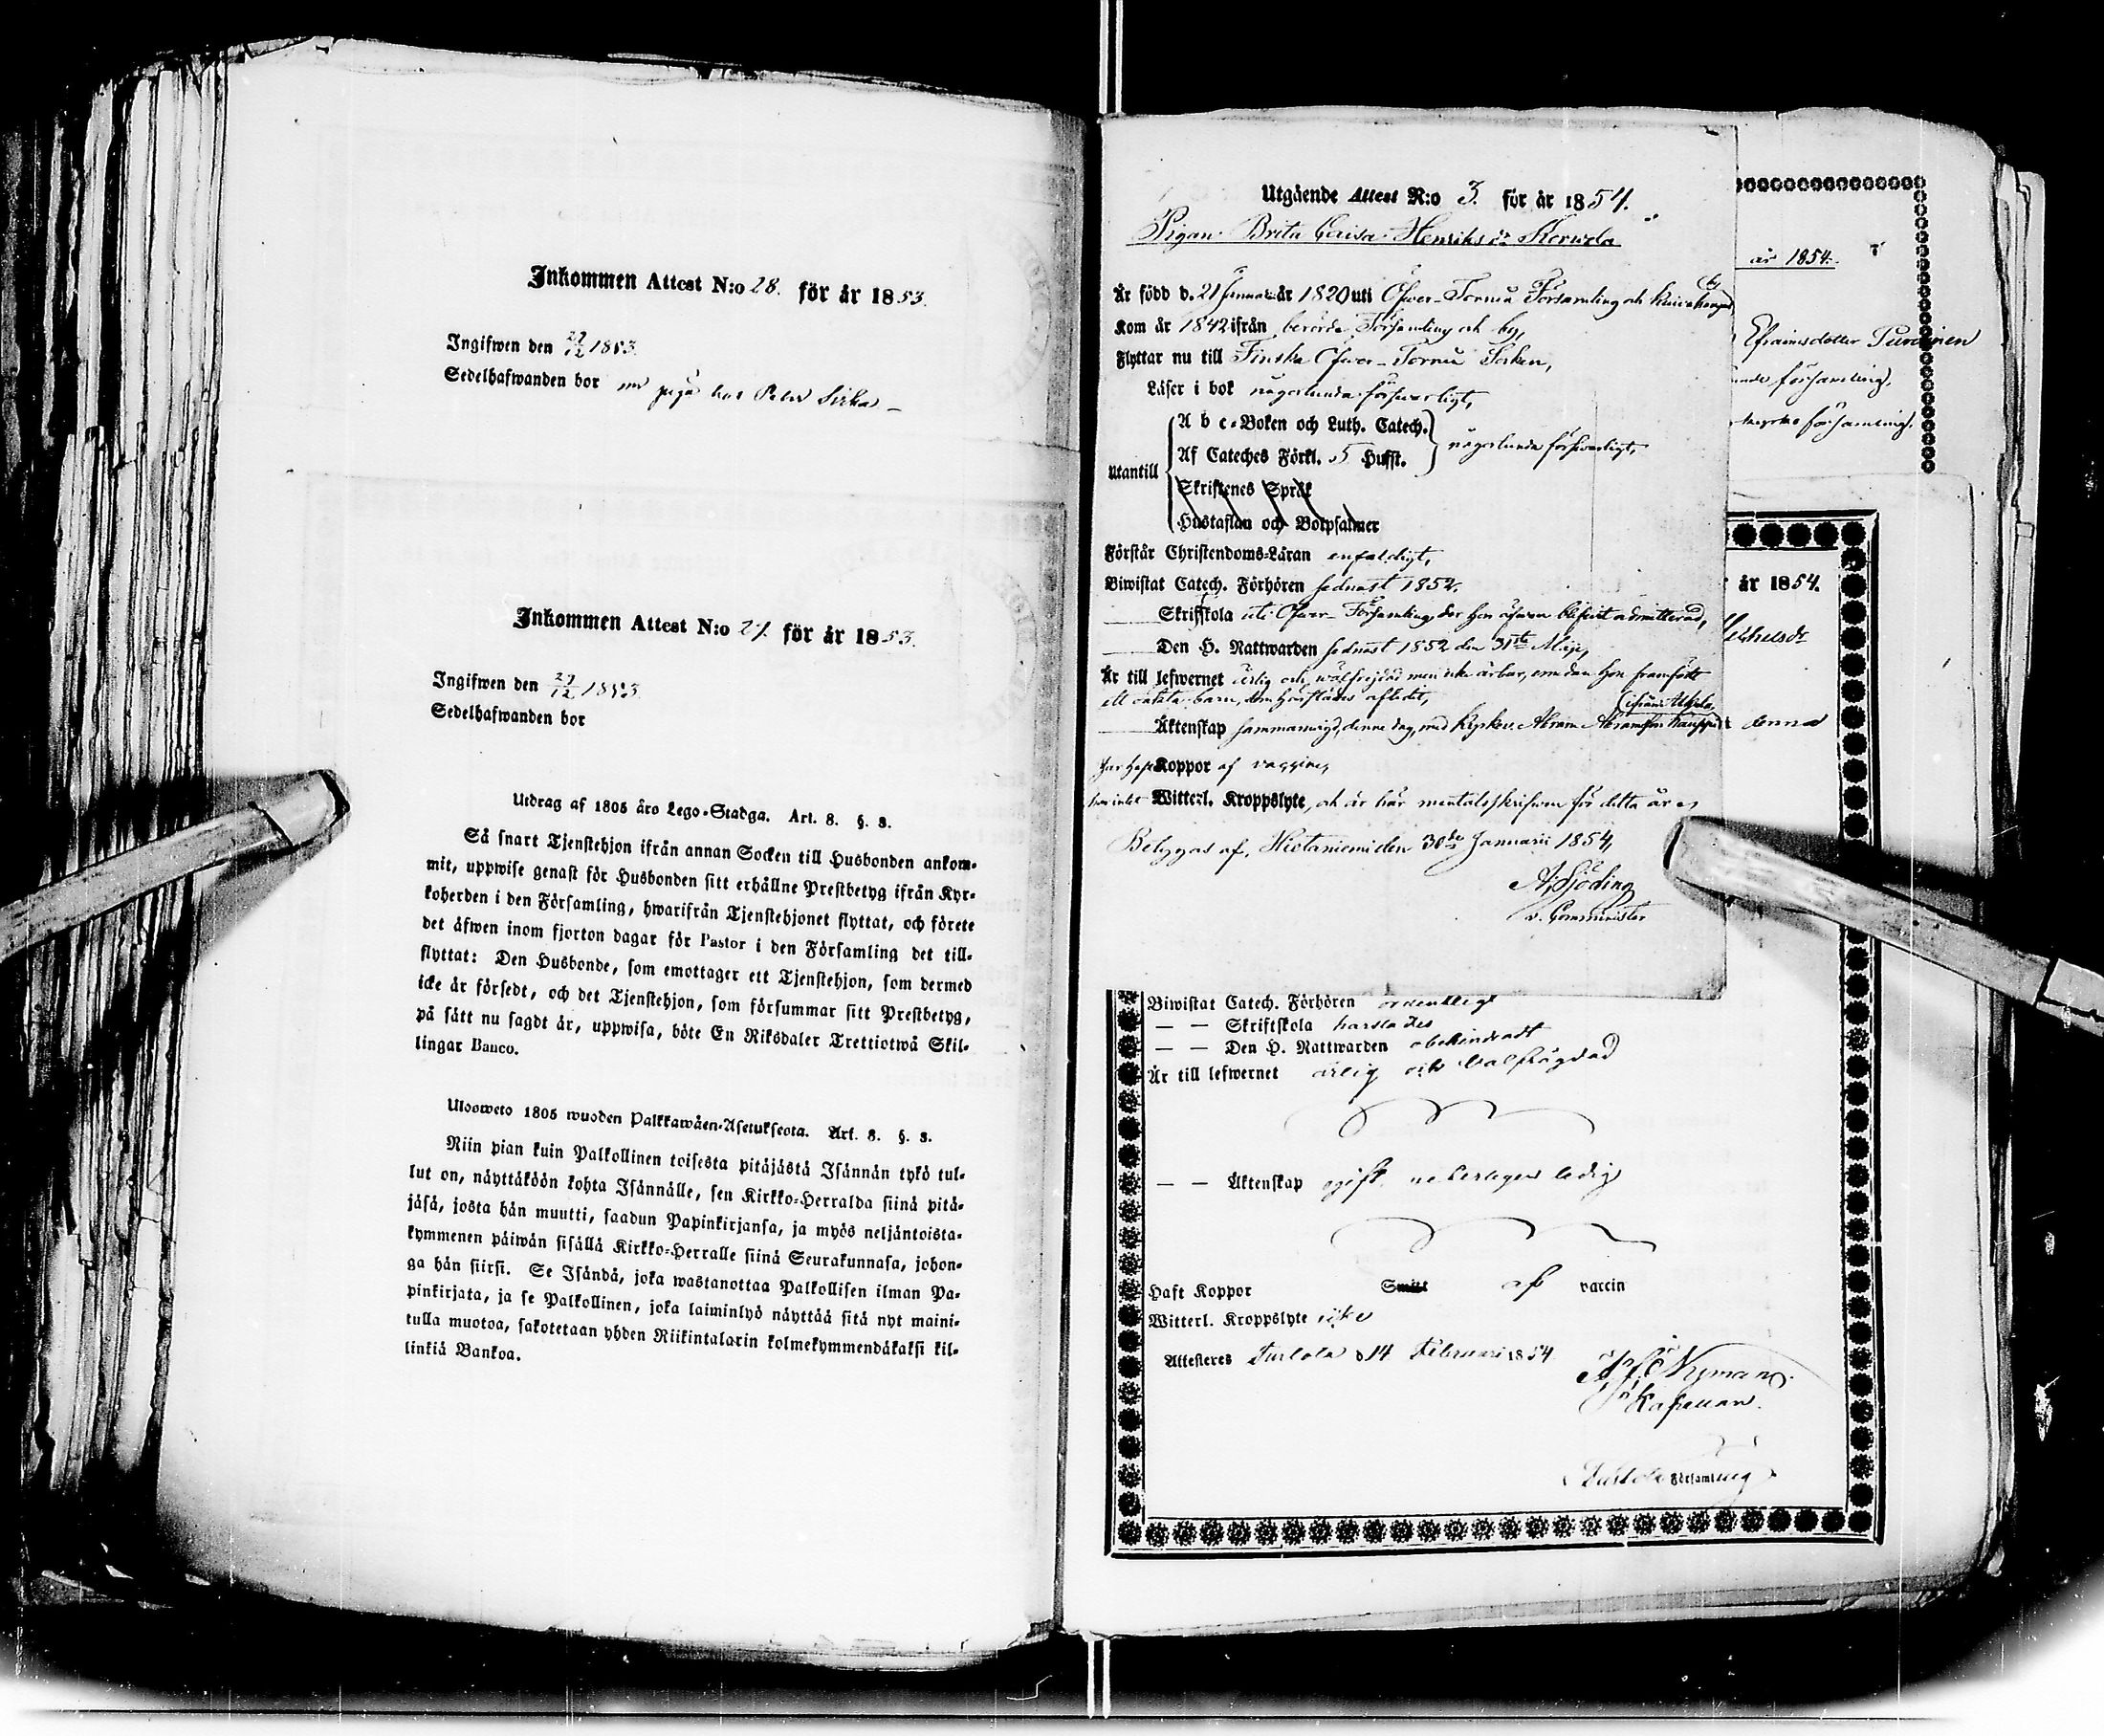 Inkommen Attest N:o 28. för år 1853.
Ingifwen den 27/12 1853.
Sedelhafwanden bor piga hos Peter Sirka
Inkommen Attest N:o 27. för år 1853.
Ingifwen den 27/12 1853
Sedelhafwanden bor
Utdrag af 1805 års Lego-Stadga. Art. 8. §. 3.
Så snart Tjenstehjon ifrån annan Socken till Husbonden ankom-
mit, uppwise genast för Husbonden sitt erhållne Prestbetyg ifrån Kyr-
koherden i den Församling, hwarifrån Tjenstehjonet flyttat, och förete
det äfwen inom fjorton dagar för Pastor i den Församling det till-
flyttat: Den Husbonde, som emottager ett Tjenstehjon, som dermed
icke är försedt, och det Tjenstehjon, som försummar sitt Prestbetyg,
på sätt nu sagdt är, uppwisa, böte En Riksdaler Trettiotwå Skil-
lingar Banco.
Ulosweto 1805 wuoden Palkkawäen-Asetuksesta. Art. 8. §. 3.
Niin pian kuin Palkollinen toisesta pitäjästä Isännän tykö tul-
lut on, näyttäköön kohta Isännälle, sen Kirkko-Herralda siinä pitä-
jäsä, josta hän muutti, saadun Papinkirjansa, ja myös neljäntoista-
kymmenen päiwän sisällä Kirkko-Herralle siinä Seurakunnasa, johon-
ga hän siirsi. Se Isändä, joka wastanottaa Palkollisen ilman Pa-
pinkirjata, ja se Palkollinen, joka laiminlyö näyttää sitä nyt maini-
tulla muotoa, sakotetaan yhden Riikintalarin kolmekymmendäkaksi kil-
linkiä Bankoa.
Utgående Attest N:o 3. för år 1854.
Pigan Brita Caisa Henriksdr Kerwela
Är född d. 21 Januari år 1820 uti Öfwer-Torneå Församling och by
Kom år 1842 ifrån berörde Församling och by,
Flyttar nu till Finska Öfwer-Torneå Socken,
Läser i bok någorlunda försvarligt,
Utantill
A b c-Boken och Luth. Catech.
Af Cateches Förkl. 5 Hufst.
någorlunda försvarligt,
Skriftenes Språk
Hustaflan och Botpsalmer
Förstår Christendoms-Läran enfaldigt,
Biwistat Catech. Förhören sednast 1852,
Skriftskola uti Öfwer-T. Församling, der hon äfwen blifvit admitterad,
Den H. Nattwarden sednast 1852 den 31sta Maji,
Är till lefwernet ärlig och wälfrejdad men icke ärbar, emedan hon framfödt
ett oäkta barn,
ifrån
Äktenskap sammanvigd, denna dag, med Abram Abramsson
har haft Koppor af vaccine,
har intet Witterl. Kroppslyte, och är här mantalsskrifwen för detta år
Betygas af, Hietaniemi den 30de Januari 1854,
A. Sjöding
v. Comminister
år 1854.
Efraimsdotter
församling.
församling.
år 1854.
denna
Biwistat Catech. Förhören ordentligt
— — Skriftskola
— — Den H. Nattwarden obehindradt
Är till lefwernet ärlig och välfrägdad
— — Äktenskap ogift ledig
Haft Koppor Smitt af vaccin
Witterl. Kroppslyte icke
Attesteras Turtola d 14 Februari 1854.
Nyman
Kapellan.
Turtola Församling